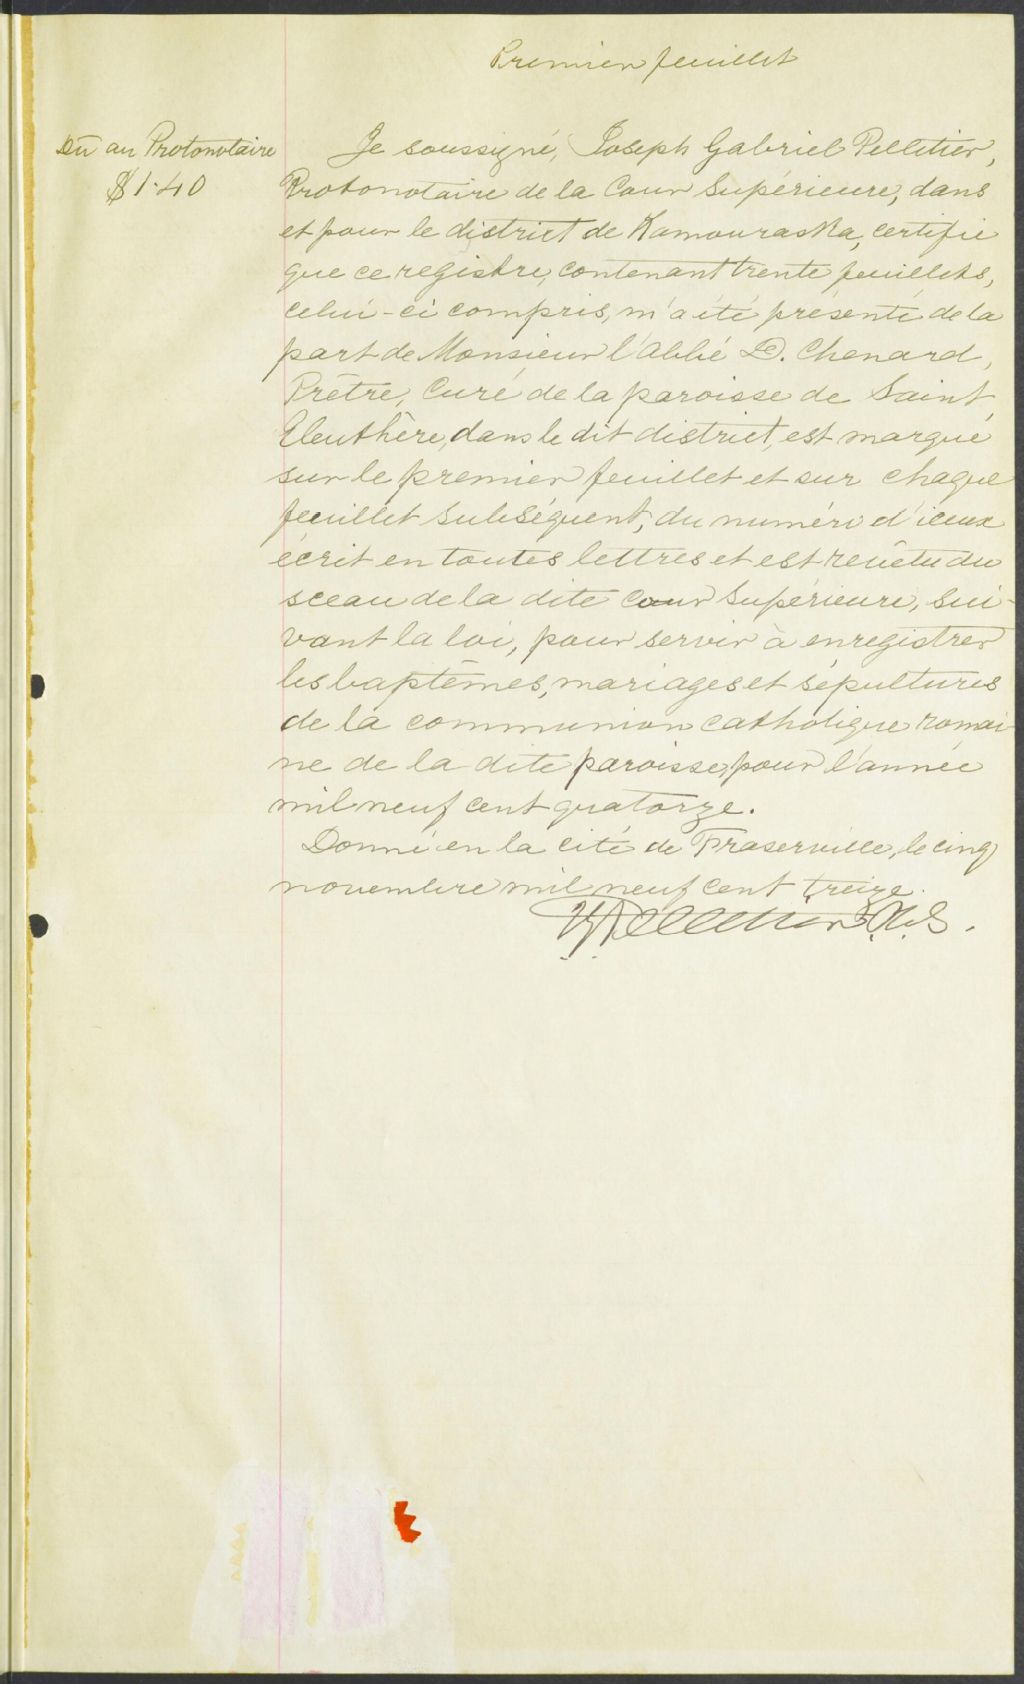 Premier feuillet
Dû au Protonotaire
$1.40
Je soussigné, Joseph Gabriel Pelletier,
Protonotaire de la Cour Supérieure, dans
et pour le district de Kamouraska, certifie
que ce registre, contenant trente feuillets,
celui-ci compris, m'a été présenté de la
part de Monsieur l'abbé D. Chenard,
Prêtre, Curé de la paroisse de Saint
Eleuthère, dans le dit district, est marqué
sur le premier feuillet et sur chaque
feuillet subséquent, du numéro d'iceux
écrit en toutes lettres et est revêtu du
sceau de la dite Cour Supérieure, sui-
vant la loi, pour servir à enregistrer
les baptêmes, mariages et sépultures
de la communion catholique romai
ne de la dite paroisse, pour l'année
mil neuf cent quatorze.
Donné en la cité de Fraserville, le cinq
novembre mil neuf cent treize.
Pelletier